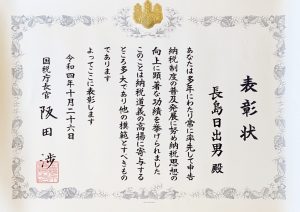 表彰状
長島日出男 殿
あなたは多年にわたり常に率先して申告
納税制度の普及発展に努め納税思想の
向上に顕著な功績を挙げられました
このことは納税道義の高揚に寄与する
ところ多大であり他の模範とすべきもの
であります
よってここに表彰します
令和四年十月二十六日
国税庁長官 阪田 渉